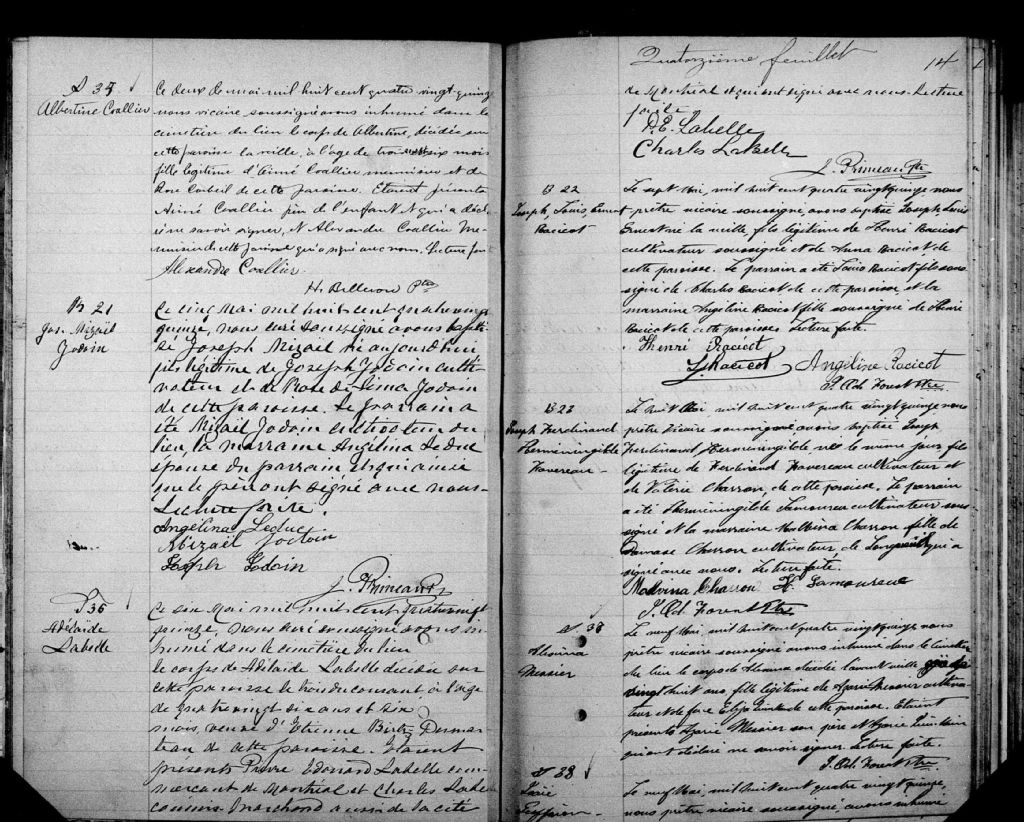 S 35
Albertine Coallier
Ce deux de mai mil huit cent quatre vingt quinze
nous vicaire soussigné avons inhumé dans le
cimetière du lieu le corps de Albertine, décédée en
cette paroisse la veille, à l'age de six mois
fille légitime d'Aimé Coallier menuisier et de
Rose de cette paroisse. Etaient présents
Aimé Coallier père de l'enfant qui a décla
ré ne savoir signer, et Alexandre Coallier me
nuisier de cette paroisse qui a signé avec nous. Lecture faite
Alexandre Coallier
H. Ptre
B 21
Jos. Mizaël
Jodoin
Ce cinq Mai mil huit cent quatre vingt
quinze, nous curé soussigné avons bapti
sé Joseph Mizaël né aujourdhui
fils légitime de Joseph Jodoin culti-
vateur et de Rose de Lima Jodoin
de cette paroisse. Le parrain a
été Mizaël Jodoin cultivateur du
lieu, la marraine Angélina Leduc
épouse du parrain et qui ainsi
que le père ont signé avec nous-
Lecture faite.
Angélina Leduc
Mizaël Jodoin
Joseph Jodoin
J. Primeau Ptr
S 36
Adélaïde
Labelle
Ce six Mai mil huit cent quatre vingt
quinze, nous curé soussigné avons in
humé dans le cimetière du lieu
le corps de Adélaïde Labelle décédée sur
cette paroisse le trois du courant à l'age
de quatrevingt six ans et six
mois, veuve d'Etienne
de cette paroisse. Etaient
présents Pierre Edouard Labelle com
merçant de Montréal et Charles Labelle
marchand aussi de la cité
Quatorzième feuillet
14
de Montréal et qui ont signé avec nous. Lecture
faite
P. E. Labelle
Charles Labelle
J. Primeau Ptr
B 22
Joseph, Louis, Ernest
Racicot
Le sept Mai, mil huit cent quatre vingt quinze nous
prêtre vicaire soussigné, avons baptisé Joseph Louis
Ernest né la veille, fils légitime de Henri Racicot
cultivateur soussigné et de Anna Racicot de
cette paroisse. Le parrain a été Louis Racicot fils sous
signé de Charles Racicot de cette paroisse et la
marraine Angéline Racicot fille soussignée de Henri
Racicot de cette paroisse. Lecture faite.
Henri Racicot
L. Racicot Angéline Racicot
J. Ad. Forest Ptre
B 23
Joseph Ferdinand
Herméningilde
Favereau
Le huit Mai mil huit cent quatre vingt quinze nous
prêtre vicaire soussigné avons baptisé Joseph
Ferdinand Herméningilde né le même jour fils
légitime de Ferdinand Favereau cultivateur et
de Valérie Charron, de cette paroisse. Le parrain
a été Herméningilde Lamoureux cultivateur sous
signé et la marraine Malvina Charron fille de
Damase Charron cultivateur, de Longueuil qui a
signé avec nous. Lecture faite.
Malvina Charron H. Lamoureux
J. Ad. Forest Ptre
S 37
Messier
Le neuf Mai, mil huit cent quatre vingt quinze nous
prêtre vicaire soussigné avons inhumé dans le cimetière
du lieu le corps de décédée l'avant veille
vingt huit ans, fille légitime de Messier cultiva-
teur et de feue de cette paroisse. Etaient
présents Messier son père et
qui ont déclaré ne savoir signer. Lecture faite.
J. Ad. Forest Ptre
S 38
Le neuf Mai, mil huit cent quatre vingt quinze,
nous prêtre vicaire soussigné, avons inhumé